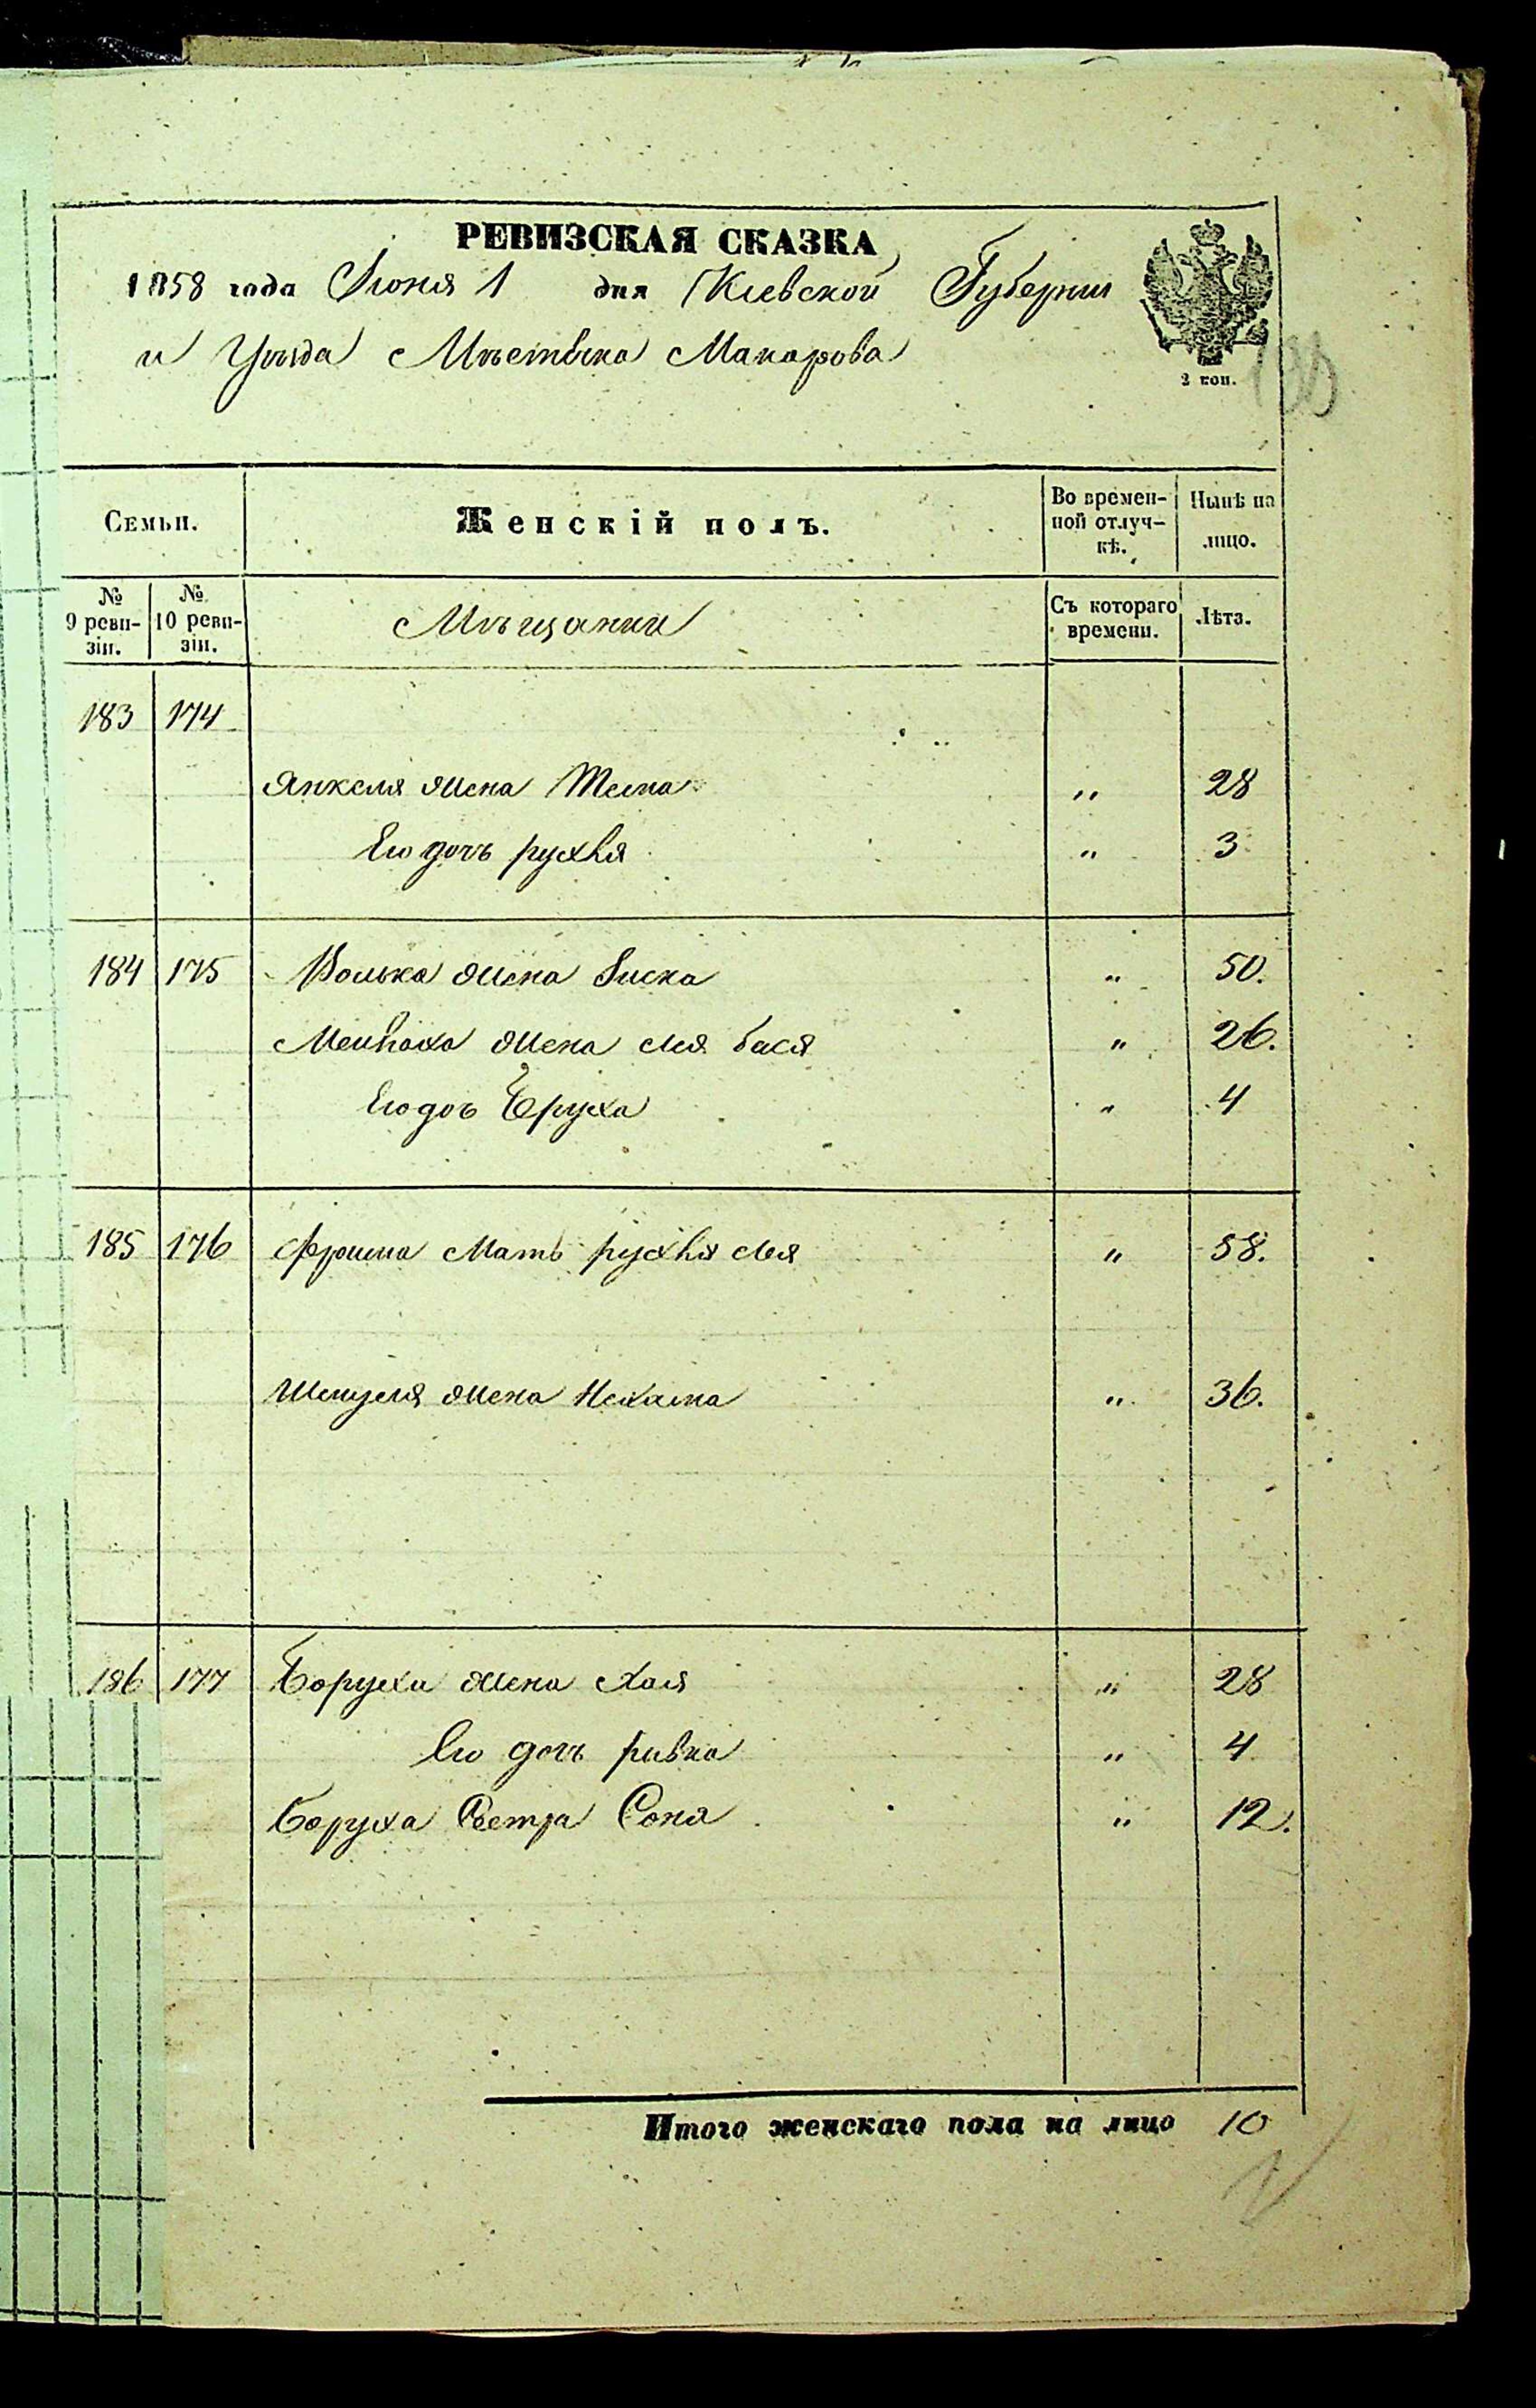 РЕВИЗСКАЯ СКАЗКА
1858 года Июня 1 дня Кіевской Губерніи
и Уѣзда Мѣстечка Макарова
2 коп.
Семьи. Женскій полъ. Во времен- Нынѣ на
ной отлуч- лицо.
кѣ.
№ № Мѣщанки Съ котораго Лѣта.
9 реви- 10 реви- времени.
зіи. зіи.
183 174
Янкеля жена Тема " 28
Его дочь рухля " 3
184 175 Волька жена Риска " 50.
жена Лея бася " 26.
Его доч " 4
185 176 Фроима Мать рухля Лея " 58.
Шмуля жена Нехама " 36.
186 177 Боруха жена Хая " 28
Его дочь ривка " 4
Боруха Сестра Соня " 12.
Итого женскаго пола на лицо 10